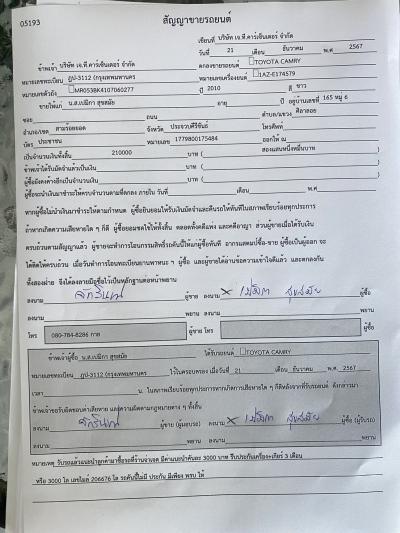 05193
สัญญาขายรถยนต์
เขียนที่ บริษัท เจ.ที.คาร์เซ็นเตอร์ จำกัด
วันที่ 21 เดือน ธันวาคม พ.ศ 2567
ข้าพเจ้า บริษัท เจ.ที.คาร์เซ็นเตอร์ จำกัด ตกลงขายรถยนต์ TOYOTA CAMRY
หมายเลขทะเบียน ฎป-3112 (กรุงเทพมหานคร หมายเลขเครื่องยนต์ 1AZ-E174579
หมายเลขตัวถัง MR053BK4107060277 ปี 2010 สี ขาว
ขายให้แก่ น.ส.เปมิกา สุขสมัย อายุ ปี อยู่บ้านเลขที่ 165 หมู่ 6
ซอย ถนน ตำบล/แขวง ศิลาลอย
อำเภอ/เขต สามร้อยยอด จังหวัด ประจวบคีรีขันธ์ โทรศัพท์
บัตร ประชาชน หมายเลข 1779800175484 ออกให้ ณ
เป็นจำนวนเงินทั้งสิ้น 210000 บาท ( สองแสนหนึ่งหมื่นบาท
ข้าพเจ้าได้รับมัดจำแล้วเป็นเงิน บาท (
ผู้ซื้อยังคงค้างอีกเป็นจำนวนเงิน บาท (
ผู้ซื้อจะนำเงินมาชำระให้ครบจำนวนตามที่ตกลง ภายใน วันที่ เดือน พ.ศ.
หากผู้ซื้อไม่นำเงินมาชำระให้ตามกำหนด ผู้ซื้อยินยอมให้รับเงินมัดจำและคืนรถให้ทันทีในสภาพเรียบร้อยทุกประการ
ถ้าหากเกิดความเสียหายใด ๆ ก็ดี ผู้ซื้อยอมชดใช้ให้ทั้งสิ้น ตลอดทั้งคดีแพ่ง และคดีอาญา ส่วนผู้ขายเมื่อได้รับเงิน
ครบถ้วนตามสัญญาแล้ว ผู้ขายจะทำการโอนกรรมสิทธิ์รถคันนี้ให้แก่ผู้ซื้อทันที
ได้ติดให้ครบถ้วน
ทั้งสองฝ่าย จึงได้ลงลายมือชื่อไว้เป็นหลักฐานต่อหน้าพยาน
ลงนาม ผู้ขาย ลงนาม × เปมิกา สุขสมัย ผู้ซื้อ
ลงนาม พยาน ลงนาม พยาน
โทร 080-784-8286 กาย ผู้ขาย โทร ผู้ซื้อ
ข้าพเจ้าผู้ซื้อ น.ส.เปมิกา สุขสมัย ได้รับรถยนต์ TOYOTA CAMRY
หมายเลขทะเบียน ฎป-3112 (กรุงเทพมหานคร ไว้ในครอบครอง เมื่อวันที่ 21 เดือน ธันวาคม พ.ศ. 2567
เวลา น. ในสภาพเรียบร้อยทุกประการหากเกิดการเสียหายใด ๆ ก็ดีหลังจากที่รับรถยนต์ ดังกล่าวมา
ข้าพเจ้าขอรับผิดชอบค่าเสียหาย และความผิดตามกฎหมายต่าง ๆ ทั้งสิ้น
ลงนาม ผู้ขาย (ผู้มอบรถ) ลงนาม × เปมิกา สุขสมัย ผู้ซื้อ (ผู้รับรถ)
ลงนาม พยาน ลงนาม พยาน
หมายเหตุ รับรถแล้วแนะนำลูกค้ามาซื้อรถที่ร้านจำเจต มีค่าแนะนำคันละ 3000 บาท รับประกันเครื่อง+เกียร์ 3 เดือน
หรือ 3000 โล เลขไมล์ 206676 โล รถคันนี้ไม่มี ประกัน มีเพียง พรบ ให้